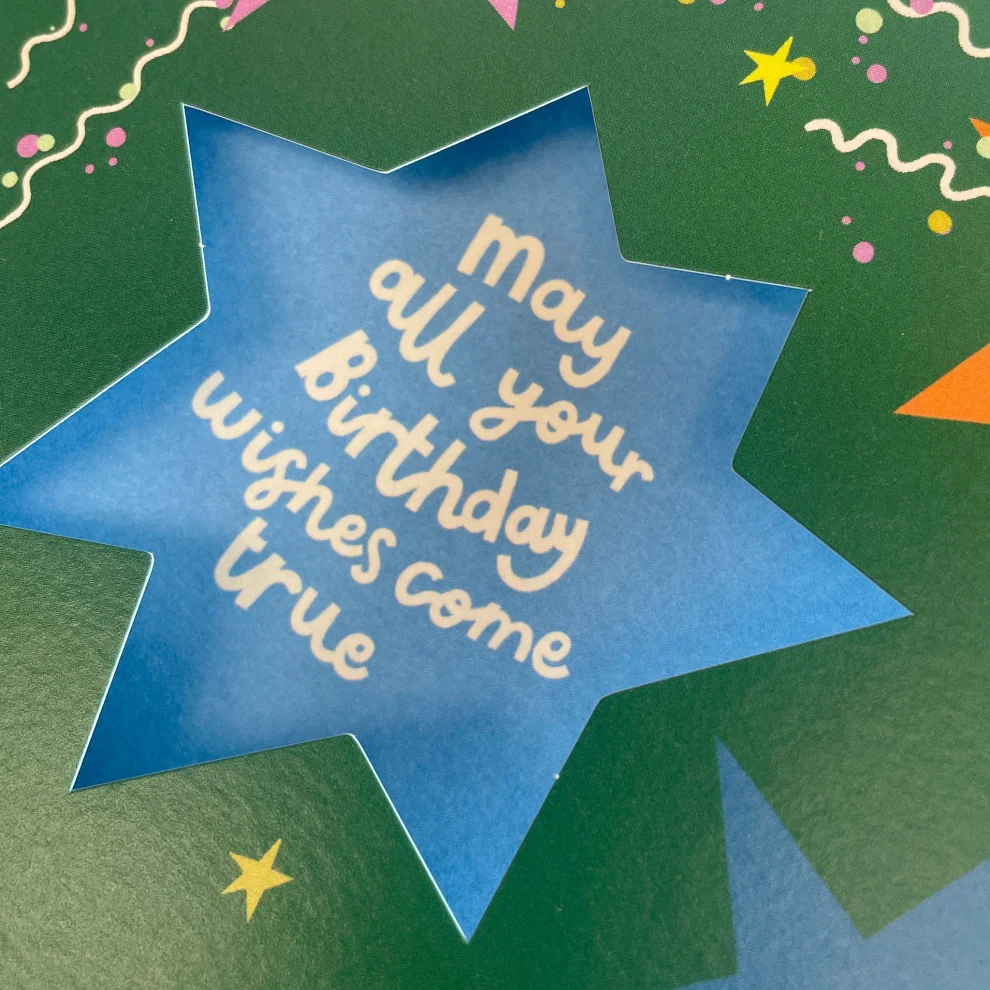 may
all your
Birthday
wishes come
true